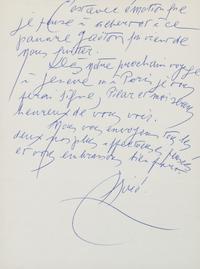 C'est avec émotion que
je pense à
pauvre Gaston qui vient de
nous quitter.
Dès notre prochain voyage
à Genève ou à Paris je vous
ferai signe, Pilar et moi serons
heureux de vous voir.
Nous vous envoyons tous les
deux nos plus affectueuses pensées
et vous embrassons bien fort.
Miró